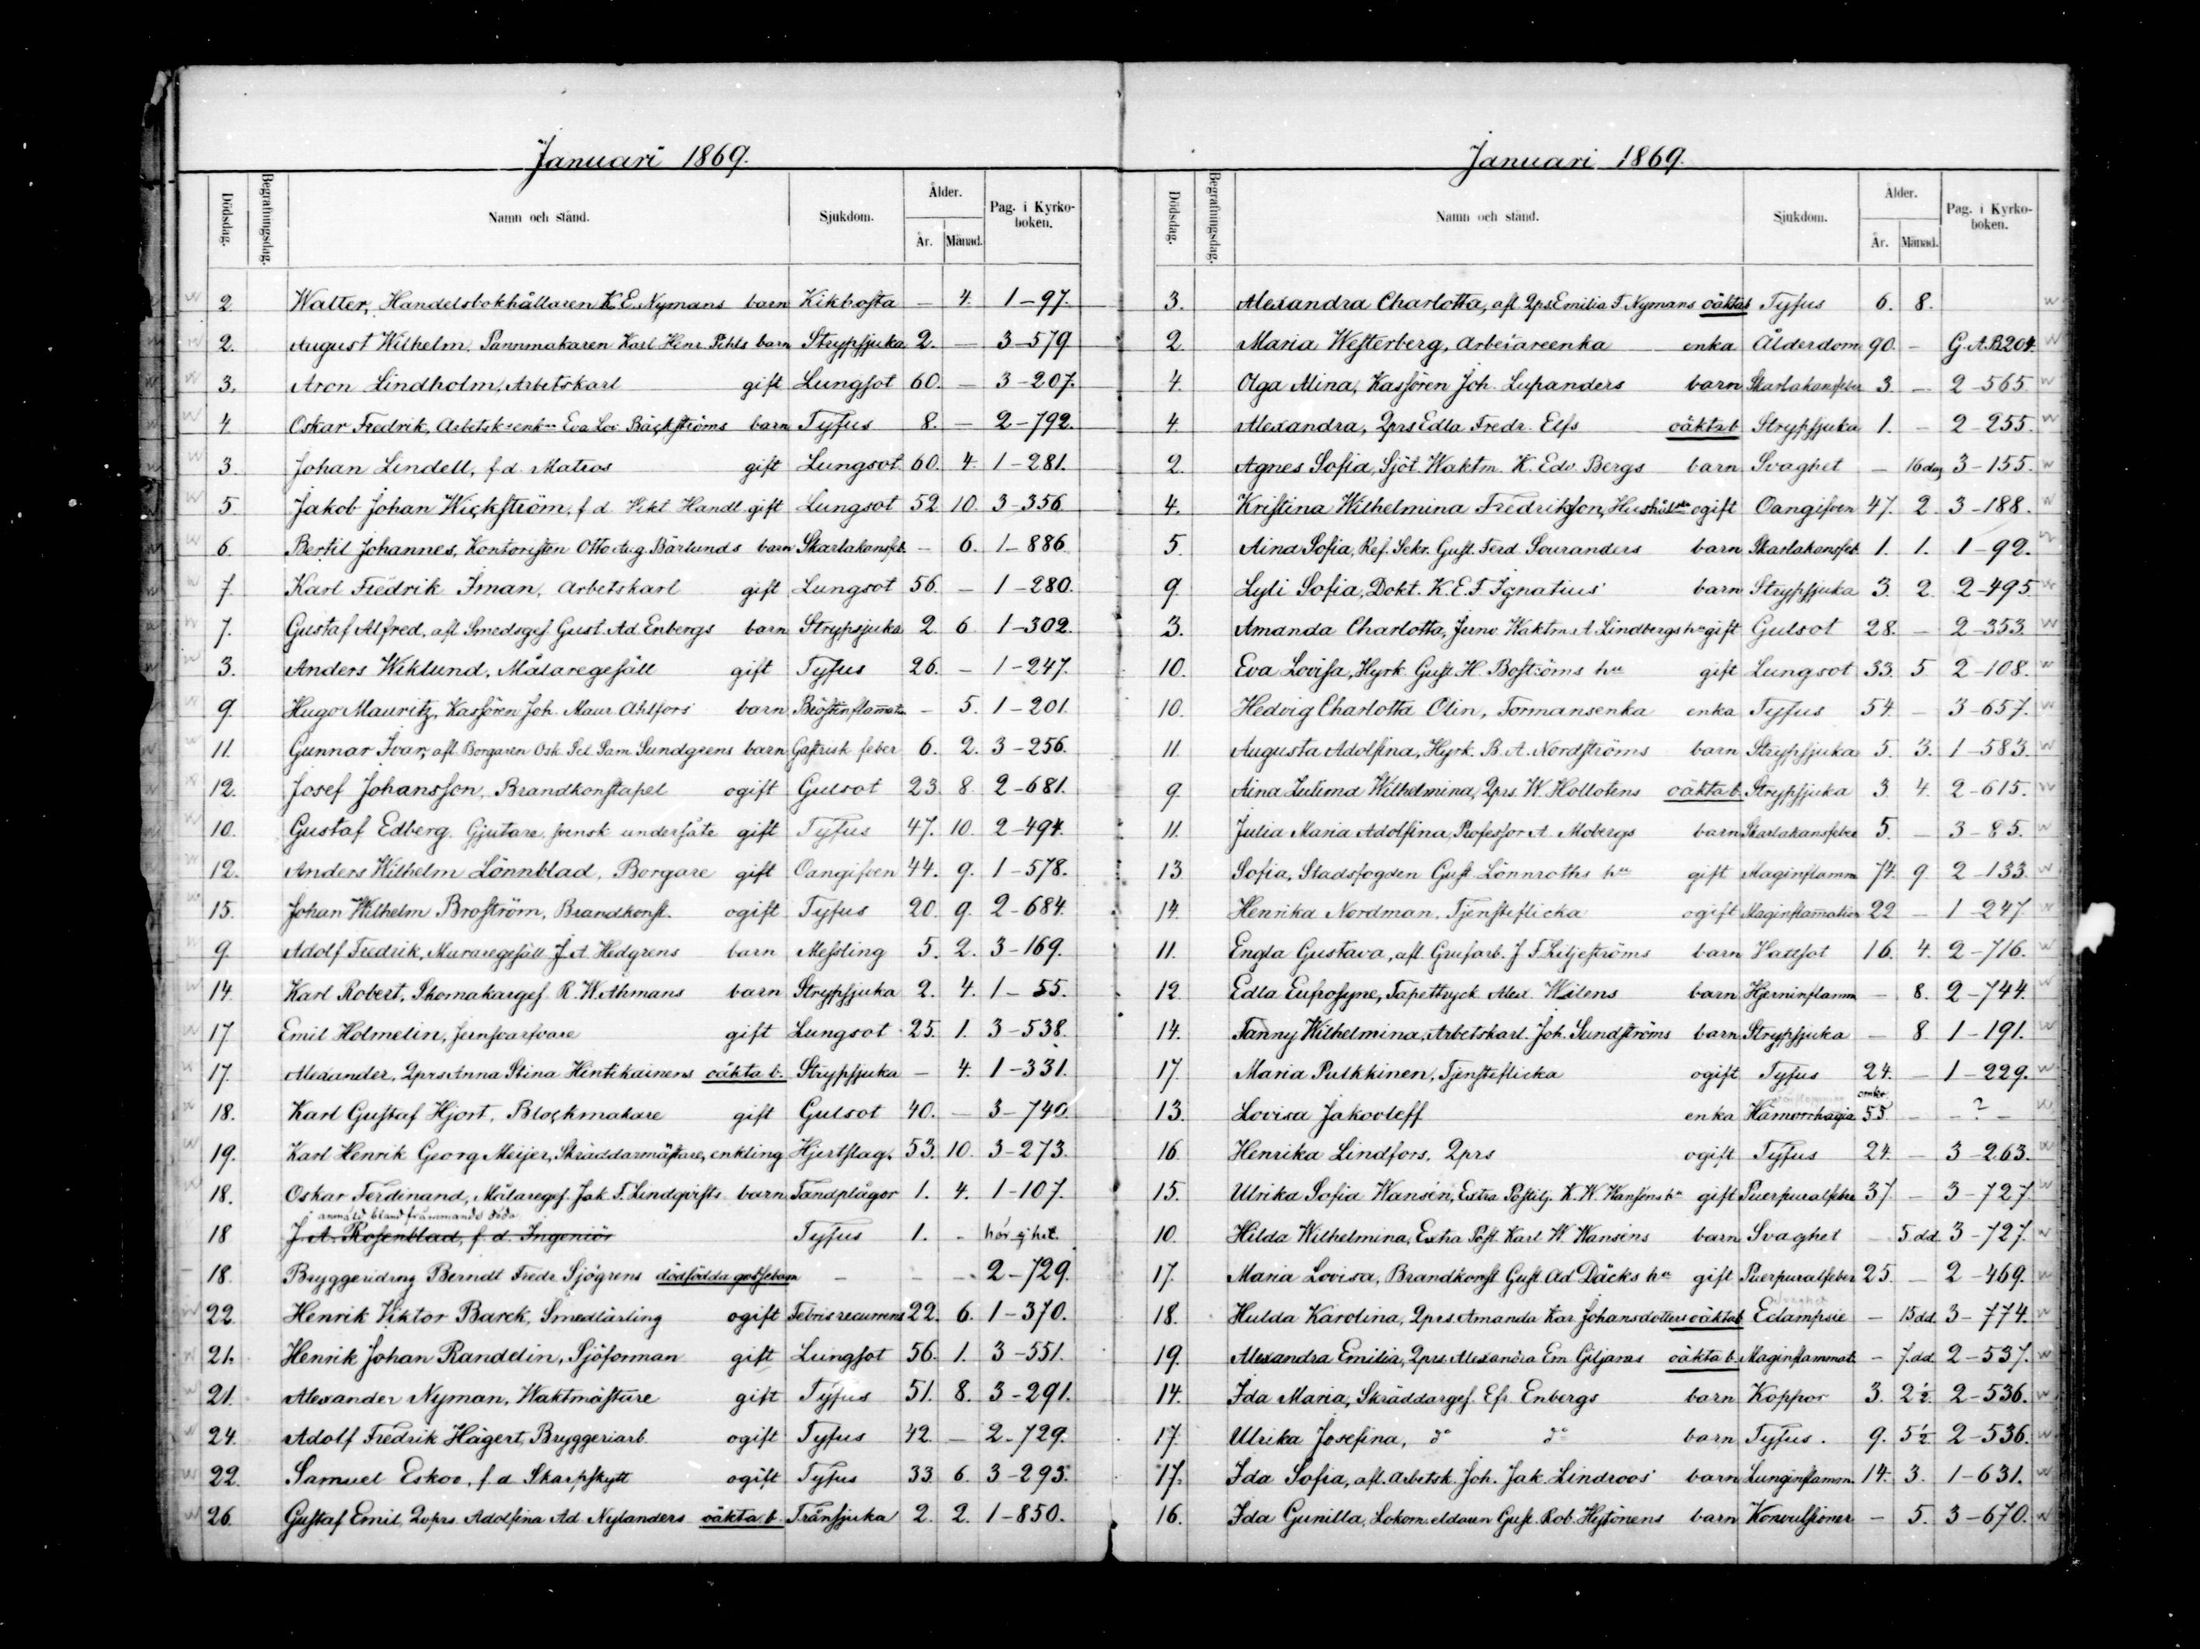 Januari 1869.
Dödsdag. Begrafningsdag. Namn och stånd. Sjukdom. Ålder. År. Månad. Pag. i Kyrkoboken.
2. Walter, Handelsbokhållaren K. E. Nymans barn Kikhosta — 4. 1-97.
2. August Wilhelm, Pannmakaren Karl Henr Pihls barn Strypsjuka 2. — 3-579
3. Aron Lindholm, Arbetskarl gift Lungsot 60. — 3-207.
4. Oskar Fredrik, Arbetsk:enk:n Eva Lov Bäckströms barn Tyfus 8. — 2-792.
3. Johan Lindell, f.d. Matros gift Lungsot 60. 4. 1-281.
5. Jakob Johan Wickström, f d Vikt Handl gift Lungsot 52 10. 3-356
6. Bertil Johannes, Kontoristen Otto Aug. Bärlunds barn Skarlakansfeb. — 6. 1-886
7. Karl Fredrik Iman, Arbetskarl gift Lungsot 56. — 1-280.
7. Gustaf Alfred, afl. Smedsges. Gust. Ad. Enbergs barn Strypsjuka 2. 6 1-302.
3. Anders Wiklund, Målaregesäll gift Tyfus 26. — 1-247.
9. Hugo Mauritz, Kassören Joh. Maur. Ahlfors barn Bröstinflamat. — 5. 1-201.
11. Gunnar Ivar, afl. Borgaren Osk. Sam Sundgrens barn Gastrisk feber 6. 2. 3-256.
12. Josef Johansson, Brandkonstapel ogift Gulsot 23. 8. 2-681.
10. Gustaf Edberg, Gjutare, svensk undersåte gift Tyfus 47. 10. 2-494.
12. Anders Wilhelm Lönnblad, Borgare gift Oangifven 44. 9. 1-578.
15. Johan Wilhelm Broström, Brandkonst. ogift Tyfus 20. 9. 2-684.
9. Adolf Fredrik, Muraregesäll J. A. Hedgrens barn Messling 5. 2. 3-169.
14. Karl Robert, Skomakarges. R. W. Ahmans barn Strypsjuka 2. 4. 1-55.
17 Emil Holmelin, Jernsvarfvare gift Lungsot 25. 1. 3-538.
17. Alexander, Qprs Anna Stina Hentikainens oäkta b. Strypsjuka — 4. 1-331.
18. Karl Gustaf Hjort, Blockmakare gift Gulsot 40. — 3-740.
19. Karl Henrik Georg Meijer, Skräddarmästare, enkling Hjertslag. 53. 10. 3-273.
18. Oskar Ferdinand, Målareges. Jak. F. Lindqvists barn Tandplågor 1. 4. 1-107.
anmäld bland främmande döda
18 J. A. Rosenblad, f. d. Ingeniör Tyfus 1. - hör ej hit.
18. Bryggeridrng Berndt Fredr. Sjögrens dödfödda gossebarn — — — 2-729.
22. Henrik Viktor Barck, Smedlärling ogift Febris recurrens 22. 6. 1-370.
21. Henrik Johan Randelin, Sjöforman gift Lungsot 56. 1. 3-551.
21. Alexander Nyman, Waktmästare gift Tyfus 51. 8. 3-291.
24. Adolf Fredrik Hägert, Bryggeriarb. ogift Tyfus 42. — 2-729.
22. Samuel Eskov, f. d Skarpskytt ogift Tyfus 33. 6. 3-293.
26. Gustaf Emil, Qvprs. Adolfina Ad. Nylanders oäkta b. Trånsjuka 2. 2. 1-850.
Januari 1869.
Dödsdag. Begrafningsdag. Namn och stånd. Sjukdom. Ålder. År. Månad. Pag. i Kyrkoboken.
3. Alexandra Charlotta, afl. Qprs Emilia F Nymans oäkta b Tyfus 6. 8.
2 Maria Westerberg, Arbetareenka enka Ålderdom 90. - G. A. B 204.
4. Olga Alina, Kassören Joh. Lupanders barn Skarlakansfeber 3. — 2-565.
4. Alexandra, Qprs Edla Fredr. Elfs oäkta b Strypsjuka 1. - 2-255.
2. Agnes Sofia, Sjöt. Waktm. K. Edv. Bergs barn Svaghet — 16 dag 3-155.
4. Kristina Wilhelmina Fredrikson, Hushål. ogift Oangifven 47. 2. 3-188.
5. Aina Sofia, Ref. Sekr. Gust. Ferd. Souranders barn Skarlakansfeb. 1. 1. 1-92.
9. Lyli Sofia, Dokt. K. E. F. Ignatius barn Strypsjuka 3. 2. 2-495
3. Amanda Charlotta, Jernv. Waktm. A. Lindbergs h:u gift Gulsot 28. — 2-353.
10. Eva Lovisa, Hyrk. Gust. H. Boströms h:u gift Lungsot 33. 5 2-108.
10. Hedvig Charlotta Olin, Formansenka enka Tyfus 54. — 3-657.
11. Augusta Adolfina, Hyrk. B. A. Nordströms barn Strypsjuka 5. 3. 1-583.
9. Aina Wilhelmina, Qprs. W. Hollotens oäkta b. Strypsjuka 3. 4. 2-615.
11. Julia Maria Adolfina, Professor A. Mobergs barn Skarlakansfeber 5. — 3-85.
13 Sofia, Stadsfogden Gust. Lönnroths h:u gift Maginflamm. 74. 9 2-133.
14. Henrika Nordman, Tjensteflicka ogift Maginflamation 22 — 1-247.
11. Engla Gustava, afl. Grufarb. J. F. Liljeströms barn Vattsot 16. 4. 2-716.
12. Edla Eufrosyne, Tapettryck. Alex. Wilens barn Hjerninflamm — 8. 2-744.
14. Fanny Wilhelmina, Arbetskarl. Joh. Sundströms barn Strypsjuka — 8 1-191.
17. Maria Pulkkinen, Tjensteflicka ogift Tyfus 24. — 1-229.
13. Lovisa Jakovleff enka Hämorrhagia cirka 55 — — ? —
16. Henrika Lindfors, Qprs ogift Tyfus 24. — 3-263.
15. Ulrika Sofia Wansén, Extra Postilj. K. W. Wanséns h:u gift Puerpuralfeber 37. — 3-727.
10. Hilda Wilhelmina, Extra Post. Karl W. Wanséns barn Svaghet - 5 dd. 3-727.
17. Maria Lovisa, Brandkonst. Gust. Ad Däcks h:u gift Puerpuralfeber 25. — 2-469.
18. Hulda Karolina, Qprs. Amanda Kar. Johansdotters oäkta b Eclampsie — 15 dd. 3-774.
19. Alexandra Emilia, Qprs. Alexandra Em Giljams oäkta b. Maginflammat. — 7. dd. 2-537.
14. Ida Maria, Skräddarges. Efr. Enbergs barn Koppor 3. 2½. 2-536.
17. Ulrika Josefina, d:o d:o barn Tyfus. 9. 5½ 2-536.
17. Ida Sofia, afl. Arbetsk. Joh. Jak. Lindroos barn Lunginflamm. 14. 3. 1-631.
16. Ida Gunilla, Lokom. eldaren Gust. Rob. Heftonens barn Konvulsioner — 5. 3-670.